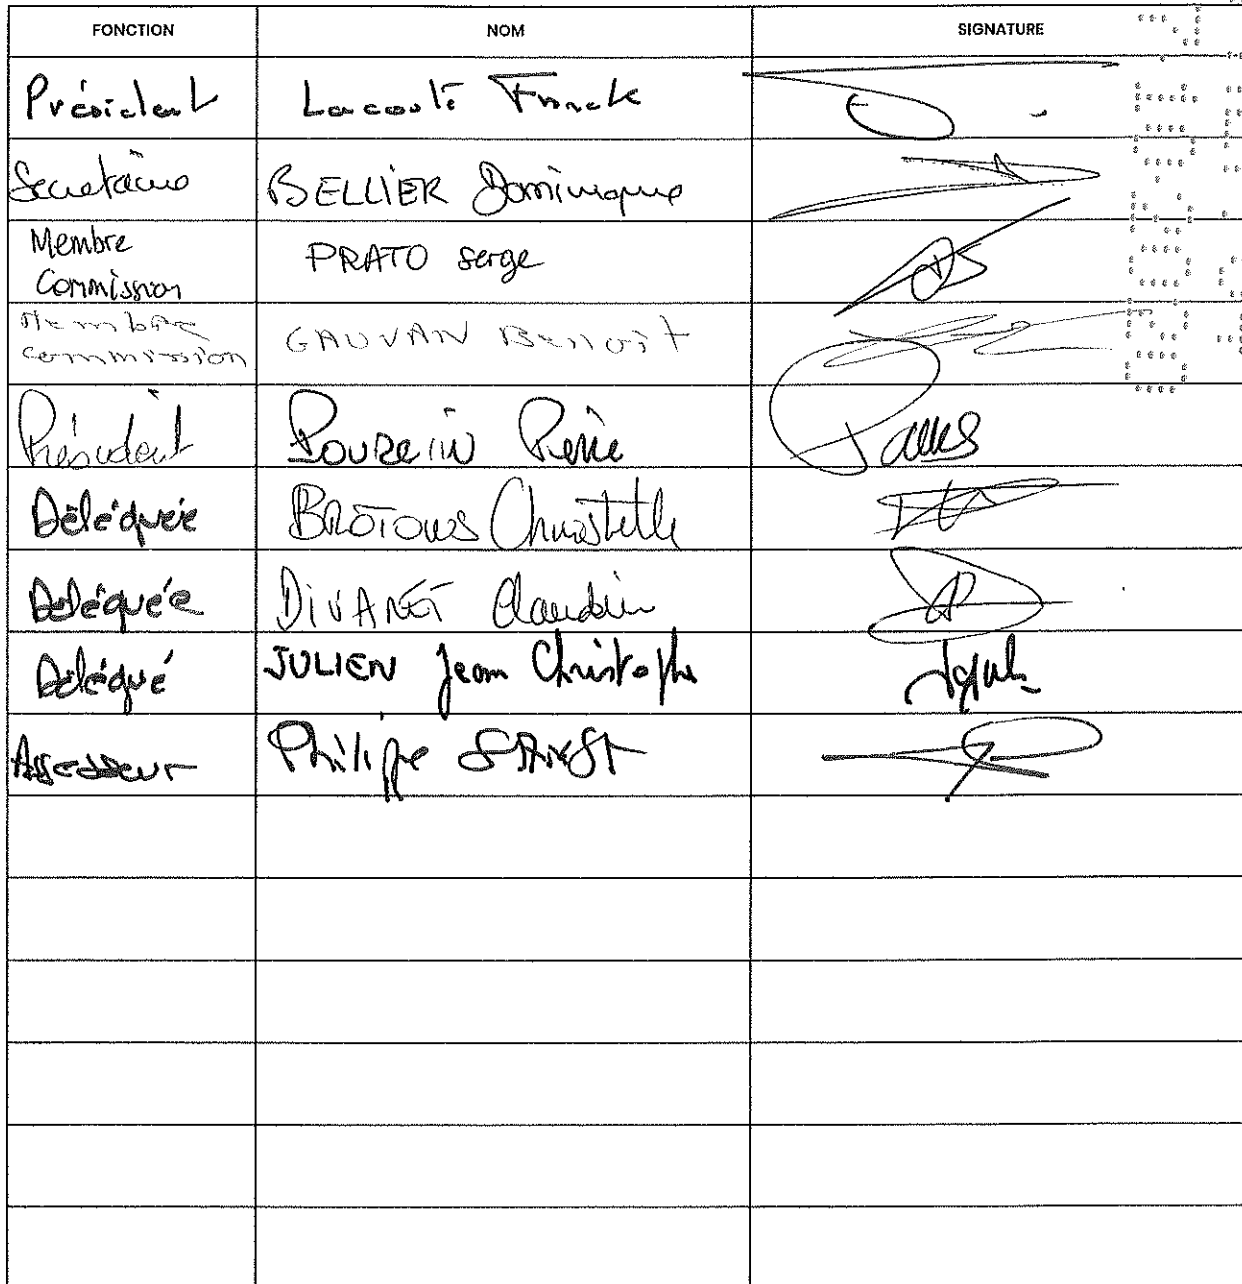 FONCTION NOM SIGNATURE
Président Lacoste Franck
Secrétaire BELLIER Dominique
Membre
Commission
PRATO serge
Membre
Commission
GAUVAN Benoit
Président
Déléguée BROTONS Christelle
Déléguée DIVANET
Délégué JULIEN Jean Christophe
Assesseur Philippe